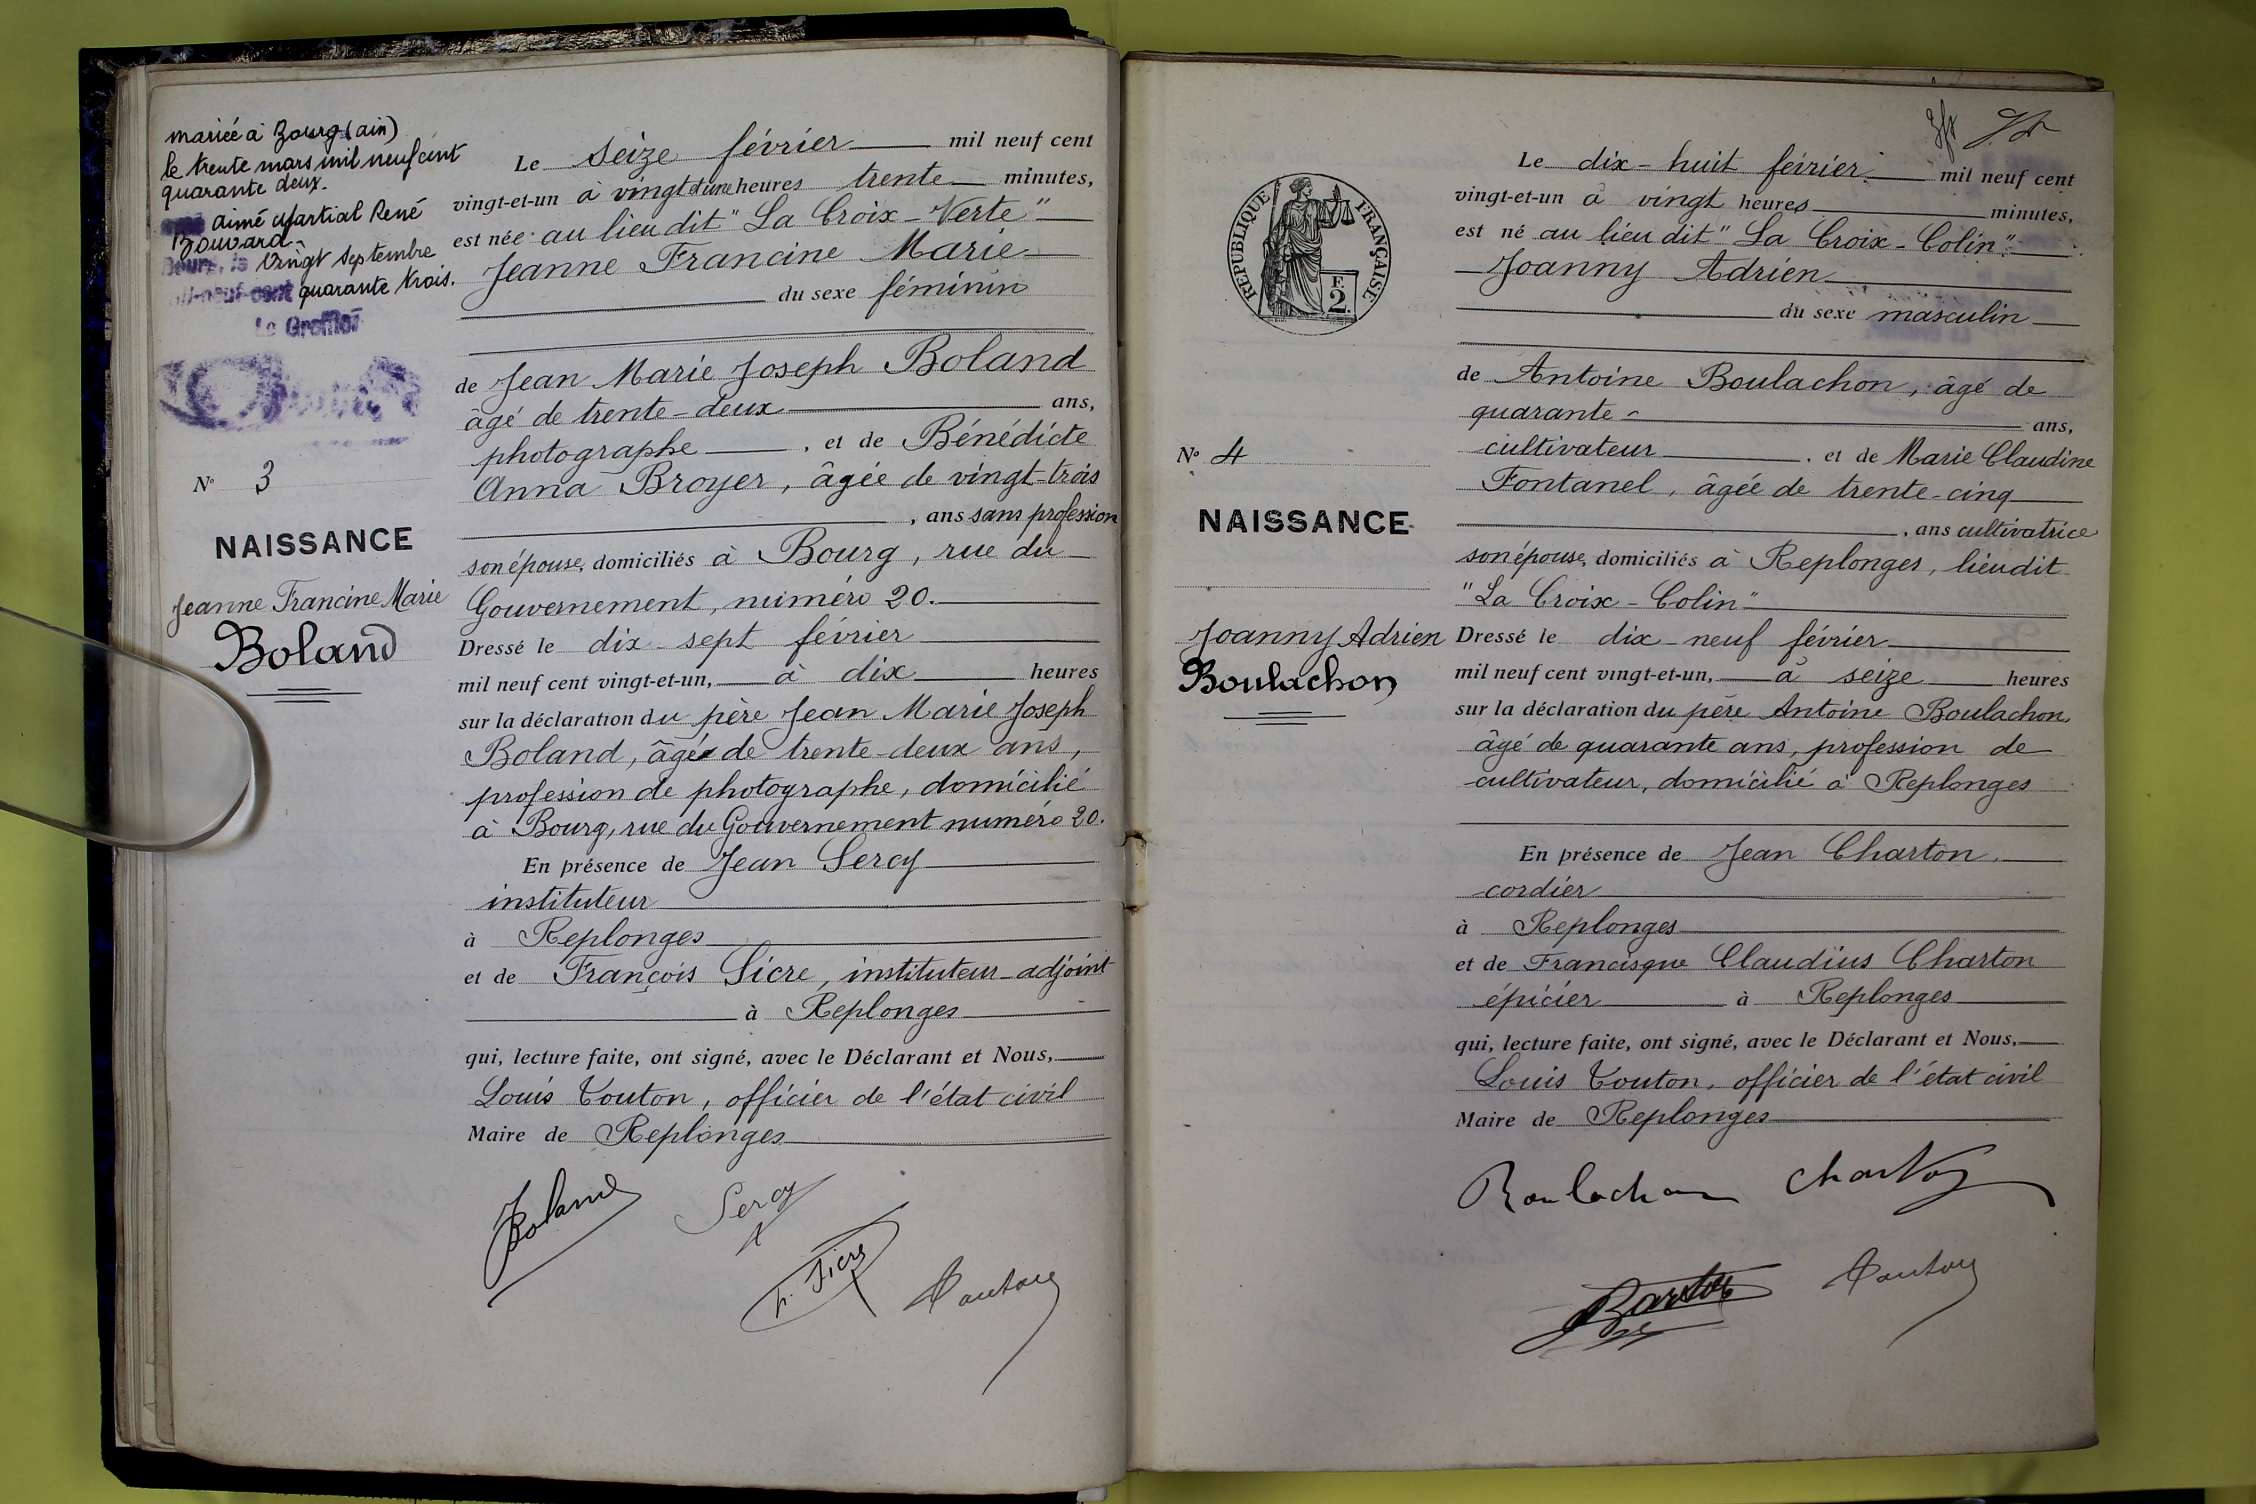 mariée à Bourg (ain)
le trente mars mil neuf cent
quarante deux.
aimé Martial René
Bouvard.
Bourg, le vingt septembre
mil-neuf-cent quarante trois.
Le Greffier
N° 3
NAISSANCE
Jeanne Francine Marie
Boland
Le seize février mil neuf cent
vingt-et-un à vingt d'une heures trente minutes,
est née au lieu dit "La Croix-Verte"
Jeanne Francine Marie
du sexe féminin
de Jean Marie Joseph Boland
âgé de trente-deux ans,
photographe, et de Bénédicte
Anna Broyer, âgée de vingt-trois
, ans sans profession
son épouse, domiciliés à Bourg, rue du
Gouvernement, numéro 20.
Dressé le dix-sept février
mil neuf cent vingt-et-un, à dix heures
sur la déclaration du père Jean Marie Joseph
Boland, âgé de trente-deux ans,
profession de photographe, domicilié
à Bourg, rue du Gouvernement numéro 20.
En présence de Jean Sercy
instituteur
à Replonges
et de François Sicre, instituteur-adjoint
à Replonges
qui, lecture faite, ont signé, avec le Déclarant et Nous,
Louis Touton, officier de l'état civil
Maire de Replonges
Boland Sercy
F. Sicre Touton
RÉPUBLIQUE FRANÇAISE
E
2.
N° 4
NAISSANCE
Joanny Adrien
Boulachon
Le dix-huit février mil neuf cent
vingt-et-un à vingt heures minutes,
est né au lieu dit "La Croix-Colin"
Joanny Adrien
du sexe masculin
de Antoine Boulachon, âgé de
quarante- ans,
cultivateur, et de Marie Claudine
Fontanel, âgée de trente-cinq
, ans cultivatrice
son épouse, domiciliés à Replonges, lieu dit
"La Croix-Colin"
Dressé le dix-neuf février
mil neuf cent vingt-et-un, à seize heures
sur la déclaration du père Antoine Boulachon,
âgé de quarante ans, profession de
cultivateur, domicilié à Replonges
En présence de Jean Charton.
cordier
à Replonges
et de Francisque Claudius Charton
épicier à Replonges
qui, lecture faite, ont signé, avec le Déclarant et Nous,
Louis Touton, officier de l'état civil
Maire de Replonges
Boulachon Charton
Touton